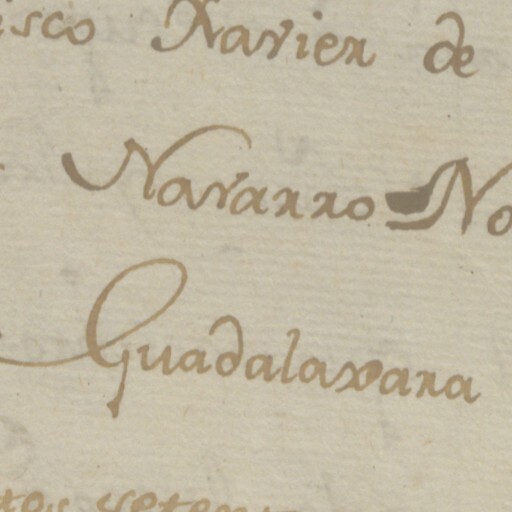 isco Xavier de
Navarro No
Guadalaxara
tos setent